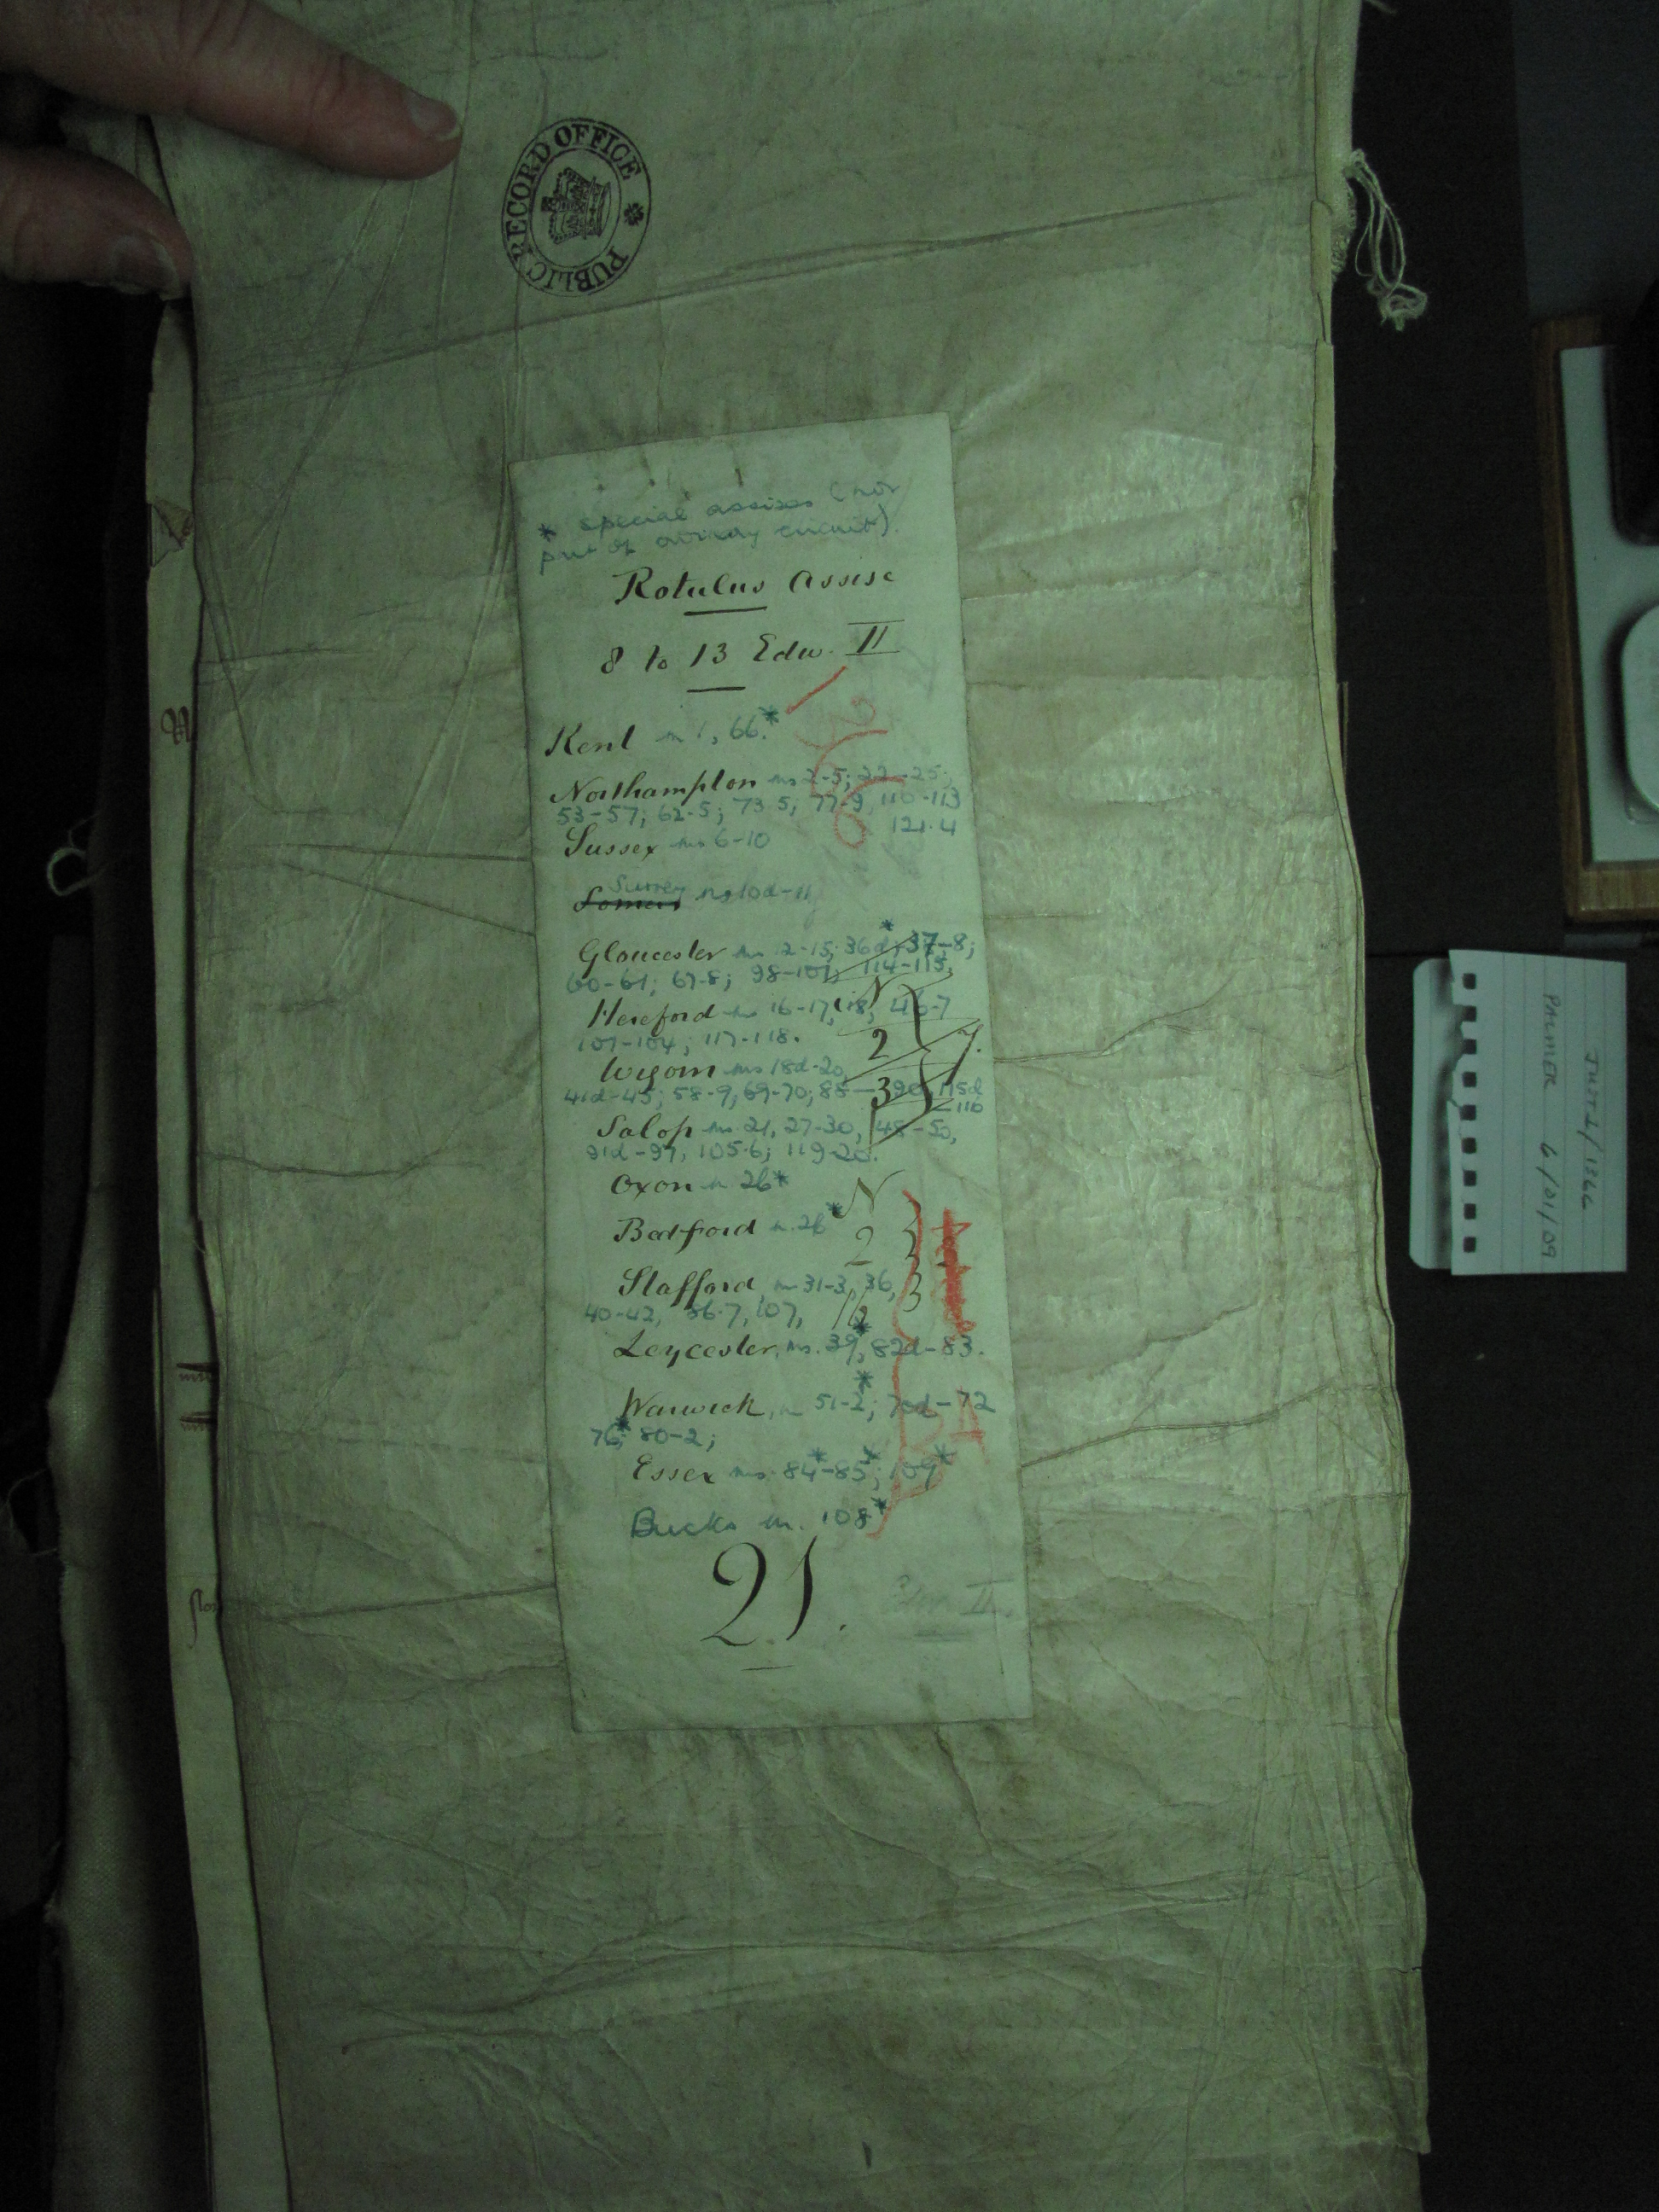 PUBLIC RECORD OFFICE
* special assizes (not
part of ordinary circuit).
Rotulus Assise
8 to 13 Edw. II
Kent m 1, 66.*
Northampton ms 2-5; 22-25;
53-57; 62-5; 73-5; 77-9, 110-113
121-4
Sussex ms 6-10
Surrey
Somers ms 10d-11
Gloucester ms 12-15; 36d*; 37-8;
60-61; 67-8; 98-101; 114-115,
Hereford ms 16-17, 18, 46-7
101-104; 117-118.
Wigorn ms 18d-20
41d-45; 58-9; 69-70; 88-90, 115d
-116
Salop ms. 21, 27-30, 48-50,
91d-97, 105-6; 119-20.
N
2
3
7.
Oxon m 26*
Bedford m. 26*
Stafford, m 31-3, 36,
40-42, 86-7, 107,
N
2
3
16
Leycester, ms. 39*, 82d-83.
Warwick, m 51-2*; 70d-72
76*; 80-2;
Essex ms. 84*-85*; 109*
Bucks m. 108*
21.
Edw. II.
JUST 1/1366
PALMER 6/01/09